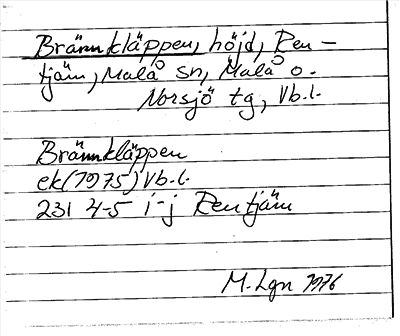 Brännkläppen, höjd, Ren-
tjäm, Malå sn, Malå o.
Norsjö tg, Vb.l.
Brännkläppen
ek(1975)Vb.l.
231 4-5 i-j Rentjäm
M.Lgn 1976